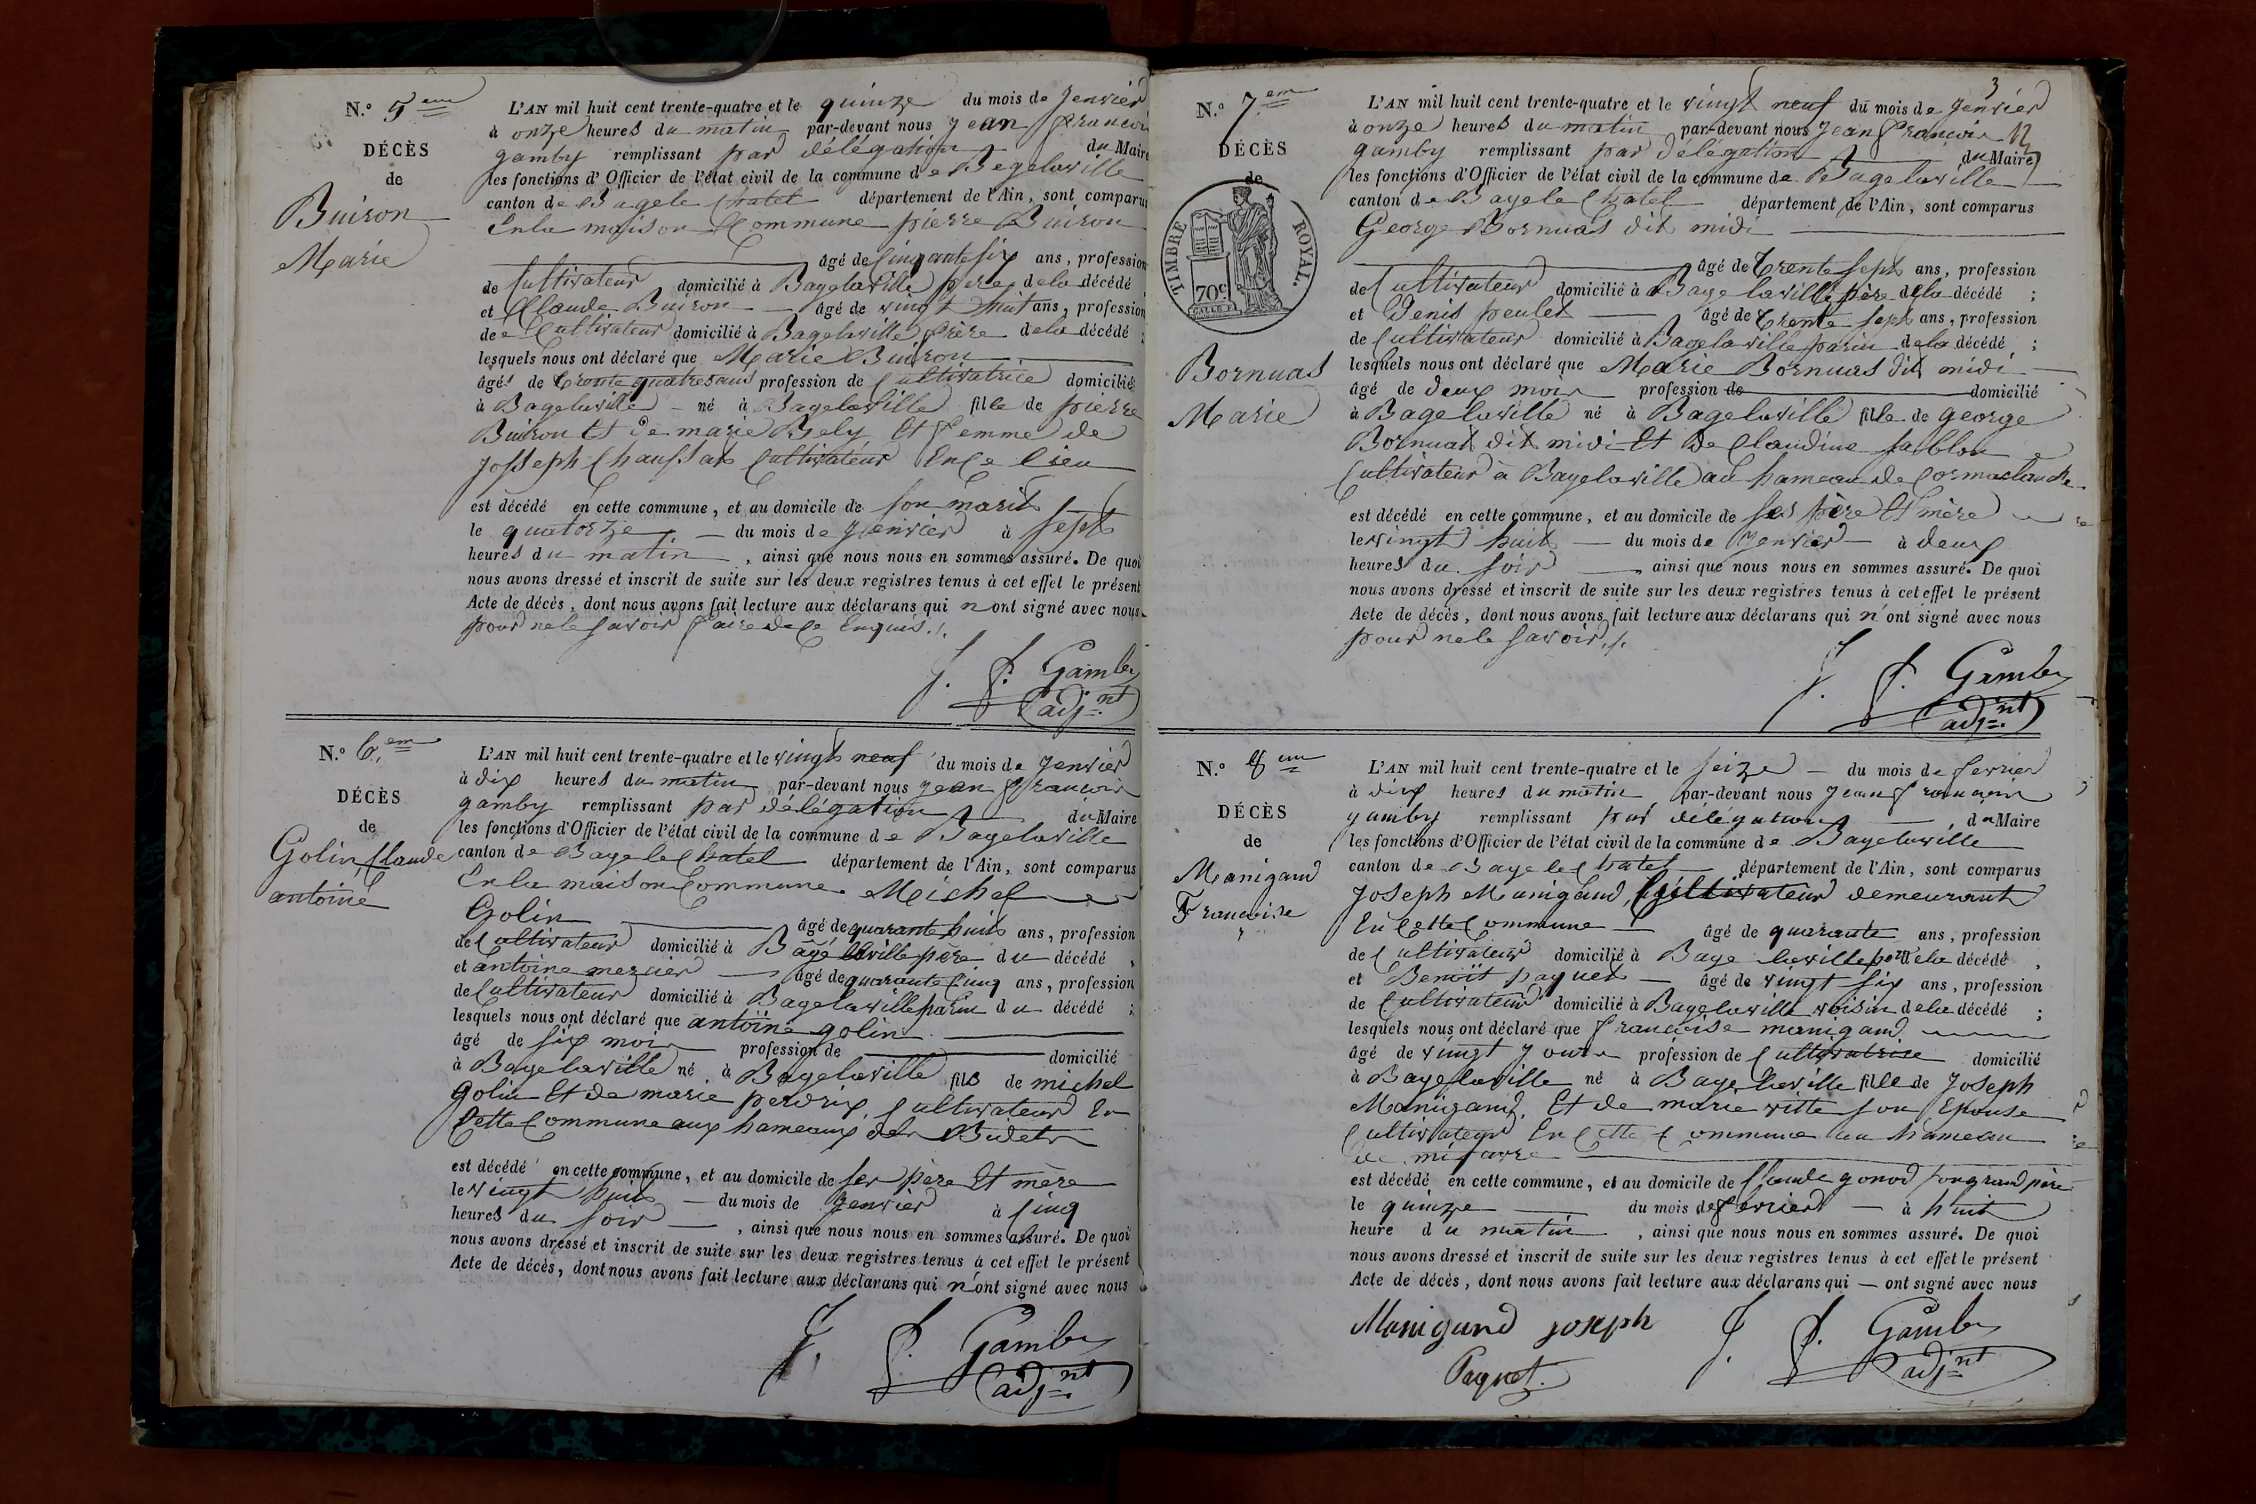 N.° 5 em
DÉCÈS
de
Buiron
Marie
L'AN mil huit cent trente-quatre et le quinze du mois de Jenvier
à onze heures du matin par-devant nous Jean francois
gamby remplissant par délégation du Maire
les fonctions d'Officier de l'état civil de la commune de Bagelaville
canton de Bagele Chatel département de l'Ain, sont comparus
En la maison Commune pierre Buiron
âgé de Cinquante six ans, profession
de Cultivateur domicilié à Bagelaville père de la décédé
et Claude Buiron âgé de vingt huit ans, profession
de Cultivateur domicilié à Bagelaville frère de la décédé ;
lesquels nous ont déclaré que Marie Buiron
âgés de trente quatre ans profession de Cultivatrice domicilié
à Bagelaville né à Bagelaville fille de pierre
Buiron Et de marie Bely Et femme de
Josseph Chaussat Cultivateur En Ce lieu
est décédé en cette commune, et au domicile de son marit
le quatorze du mois de Jenvier à sept
heures du matin, ainsi que nous nous en sommes assuré. De quoi
nous avons dressé et inscrit de suite sur les deux registres tenus à cet effet le présent
Acte de décès, dont nous avons fait lecture aux déclarans qui n'ont signé avec nous
pour ne le savoir faire de ce Enquis ./.
J. f. Gamby
adj.nt
N.° 6. em
DÉCÈS
de
Golin, Claude
antoine
L'AN mil huit cent trente-quatre et le vingt neuf du mois de Jenvier
à dix heures du matin par-devant nous Jean francois
gamby remplissant par délégation du Maire
les fonctions d'Officier de l'état civil de la commune de Bagelaville
canton de Bage le Chatel département de l'Ain, sont comparus
En la maison Commune Michel
Golin âgé de quarante huit ans, profession
de Cultivateur domicilié à Bagé laville père du décédé ,
et antoine mercier âgé de quarante Cinq ans, profession
de Cultivateur domicilié à Bagelaville parin du décédé ;
lesquels nous ont déclaré que antoine golin
âgé de six mois profession de domicilié
à Bagelaville né à Bagelaville fils de michel
golin Et de marie perdrix, Cultivateur En
Cette Commune aux hameaux des Budets
est décédé en cette commune, et au domicile de ses père Et mère
le vingt huit du mois de Jenvier à Cinq
heures du soir, ainsi que nous nous en sommes assuré. De quoi
nous avons dressé et inscrit de suite sur les deux registres tenus à cet effet le présent
Acte de décès, dont nous avons fait lecture aux déclarans qui n'ont signé avec nous
J. f. Gamby
adj.nt
3
N.° 7. em
DÉCÈS
de
TIMBRE ROYAL.
70c
Bornuas
Marie
L'AN mil huit cent trente-quatre et le vingt neuf du mois de Jenvier
à onze heures du matin par-devant nous Jean francois
gamby remplissant par délégation du Maire
les fonctions d'Officier de l'état civil de la commune de Bagelaville
canton de Bage le Chatel département de l'Ain, sont comparus
George Bornuas dit midi
âgé de trente sept ans, profession
de Cultivateur domicilié à Bage laville père de la décédé ;
et Denis peulet âgé de trente sept ans, profession
de Cultivateur domicilié à Bagelaville parin de la décédé ;
lesquels nous ont déclaré que Marie Bornuas dit midi
âgé de deux mois profession de domicilié
à Bagelaville né à Bagelaville fille de george
Bornuat dit midi Et de Claudine sablon
Cultivateur à Bagelaville au hameau de
est décédé en cette commune, et au domicile de ses père Et mère
le vingt huit du mois de Jenvier à deux
heures du soir, ainsi que nous nous en sommes assuré. De quoi
nous avons dressé et inscrit de suite sur les deux registres tenus à cet effet le présent
Acte de décès, dont nous avons fait lecture aux déclarans qui n'ont signé avec nous
pour ne le savoir ./.
J. f. Gamby
adj.nt
N.° 8 em
DÉCÈS
de
Manigand
Francoise
L'AN mil huit cent trente-quatre et le seize du mois de fevrier
à dix heures du matin par-devant nous Jean francois
gamby remplissant par délégation du Maire
les fonctions d'Officier de l'état civil de la commune de Bagelaville
canton de Bage le Chatel département de l'Ain, sont comparus
Joseph Manigand, Cultivateur demeurant
En Cette Commune âgé de quarante ans, profession
de Cultivateur domicilié à Bage laville père de la décédé ,
et Benoit paquet âgé de vingt six ans, profession
de Cultivateur domicilié à Bagelaville voisin de la décédé ;
lesquels nous ont déclaré que francoise manigand
âgé de vingt Jours profession de Cultivatrice domicilié
à Bagelaville né à Bage laville fille de Joseph
Manigand, Et de marie vitte son Epouse
Cultivateur En Cette Commune au hameau
de
est décédé en cette commune, et au domicile de Claude gonod son grand père
le quinze du mois de fevrier à huit
heure du matin, ainsi que nous nous en sommes assuré. De quoi
nous avons dressé et inscrit de suite sur les deux registres tenus à cet effet le présent
Acte de décès, dont nous avons fait lecture aux déclarans qui ont signé avec nous
Manigand joseph
J. f. Gamby
adj.nt
Paquet.